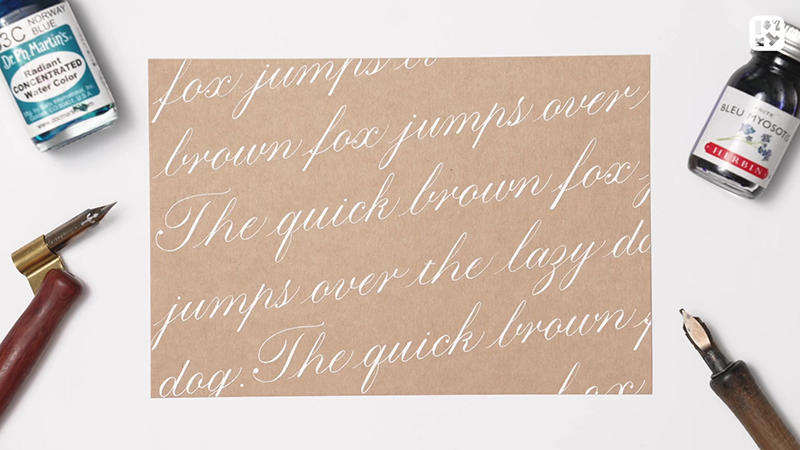 3C NORWAY
BLUE
Dr. Ph. Martin's
Radiant
CONCENTRATED
Water Color
BLEU MYOSOTIS
HERBIN
fox jumps
brown fox jumps over
The quick brown fox
jumps over the lazy do
dog. The quick brown
fox